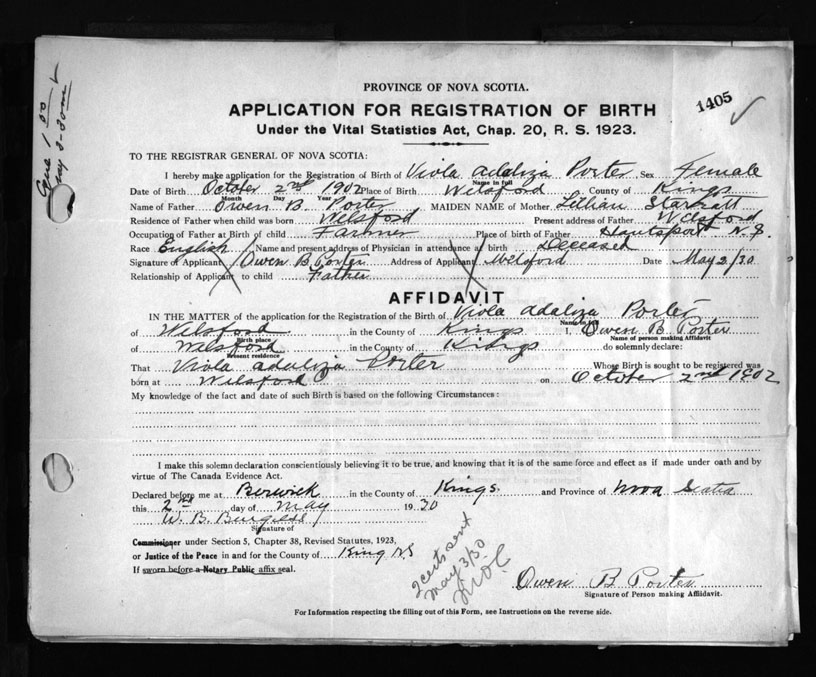 PROVINCE OF NOVA SCOTIA.
1405
APPLICATION FOR REGISTRATION OF BIRTH
Under the Vital Statistics Act, Chap. 20, R. S. 1923.
TO THE REGISTRAR GENERAL OF NOVA SCOTIA:
I hereby make application for the Registration of Birth of Viola Adaliza Porter Sex Female
Name in full
Date of Birth October 2nd 1902 Place of Birth Welsford County of Kings
Month Day Year
Name of Father Owen B. Porter MAIDEN NAME of Mother Lillian Starratt
Residence of Father when child was born Welsford Present address of Father Welsford
Occupation of Father at Birth of child Farmer Place of birth of Father Hantsport N.S.
Race English Name and present address of Physician in attendance at birth Deceased
Signature of Applicant Owen B Porter Address of Applicant Welsford Date May 2/30
Relationship of Applicant to child Father
AFFIDAVIT
IN THE MATTER of the application for the Registration of the Birth of Viola Adaliza Porter
Name in full
of Welsford in the County of Kings I, Owen B Porter
Birth place Name of person making Affidavit
of Welsford in the County of Kings do solemnly declare:
Present residence
That Viola Adaliza Porter Whose Birth is sought to be registered was
born at Welsford on October 2nd 1902
My knowledge of the fact and date of such Birth is based on the following Circumstances:
I make this solemn declaration conscientiously believing it to be true, and knowing that it is of the same force and effect as if made under oath and by
virtue of The Canada Evidence Act.
Declared before me at Berwick in the County of Kings and Province of Nova Scotia
this 2nd day of May 1930
W. B. Burgess
Signature of
Commissioner under Section 5, Chapter 38, Revised Statutes, 1923,
or Justice of the Peace in and for the County of King NS
If sworn before a Notary Public affix seal.
2 certs sent
May 3/30
Owen B Porter
Signature of Person making Affidavit.
For Information respecting the filling out of this Form, see Instructions on the reverse side.